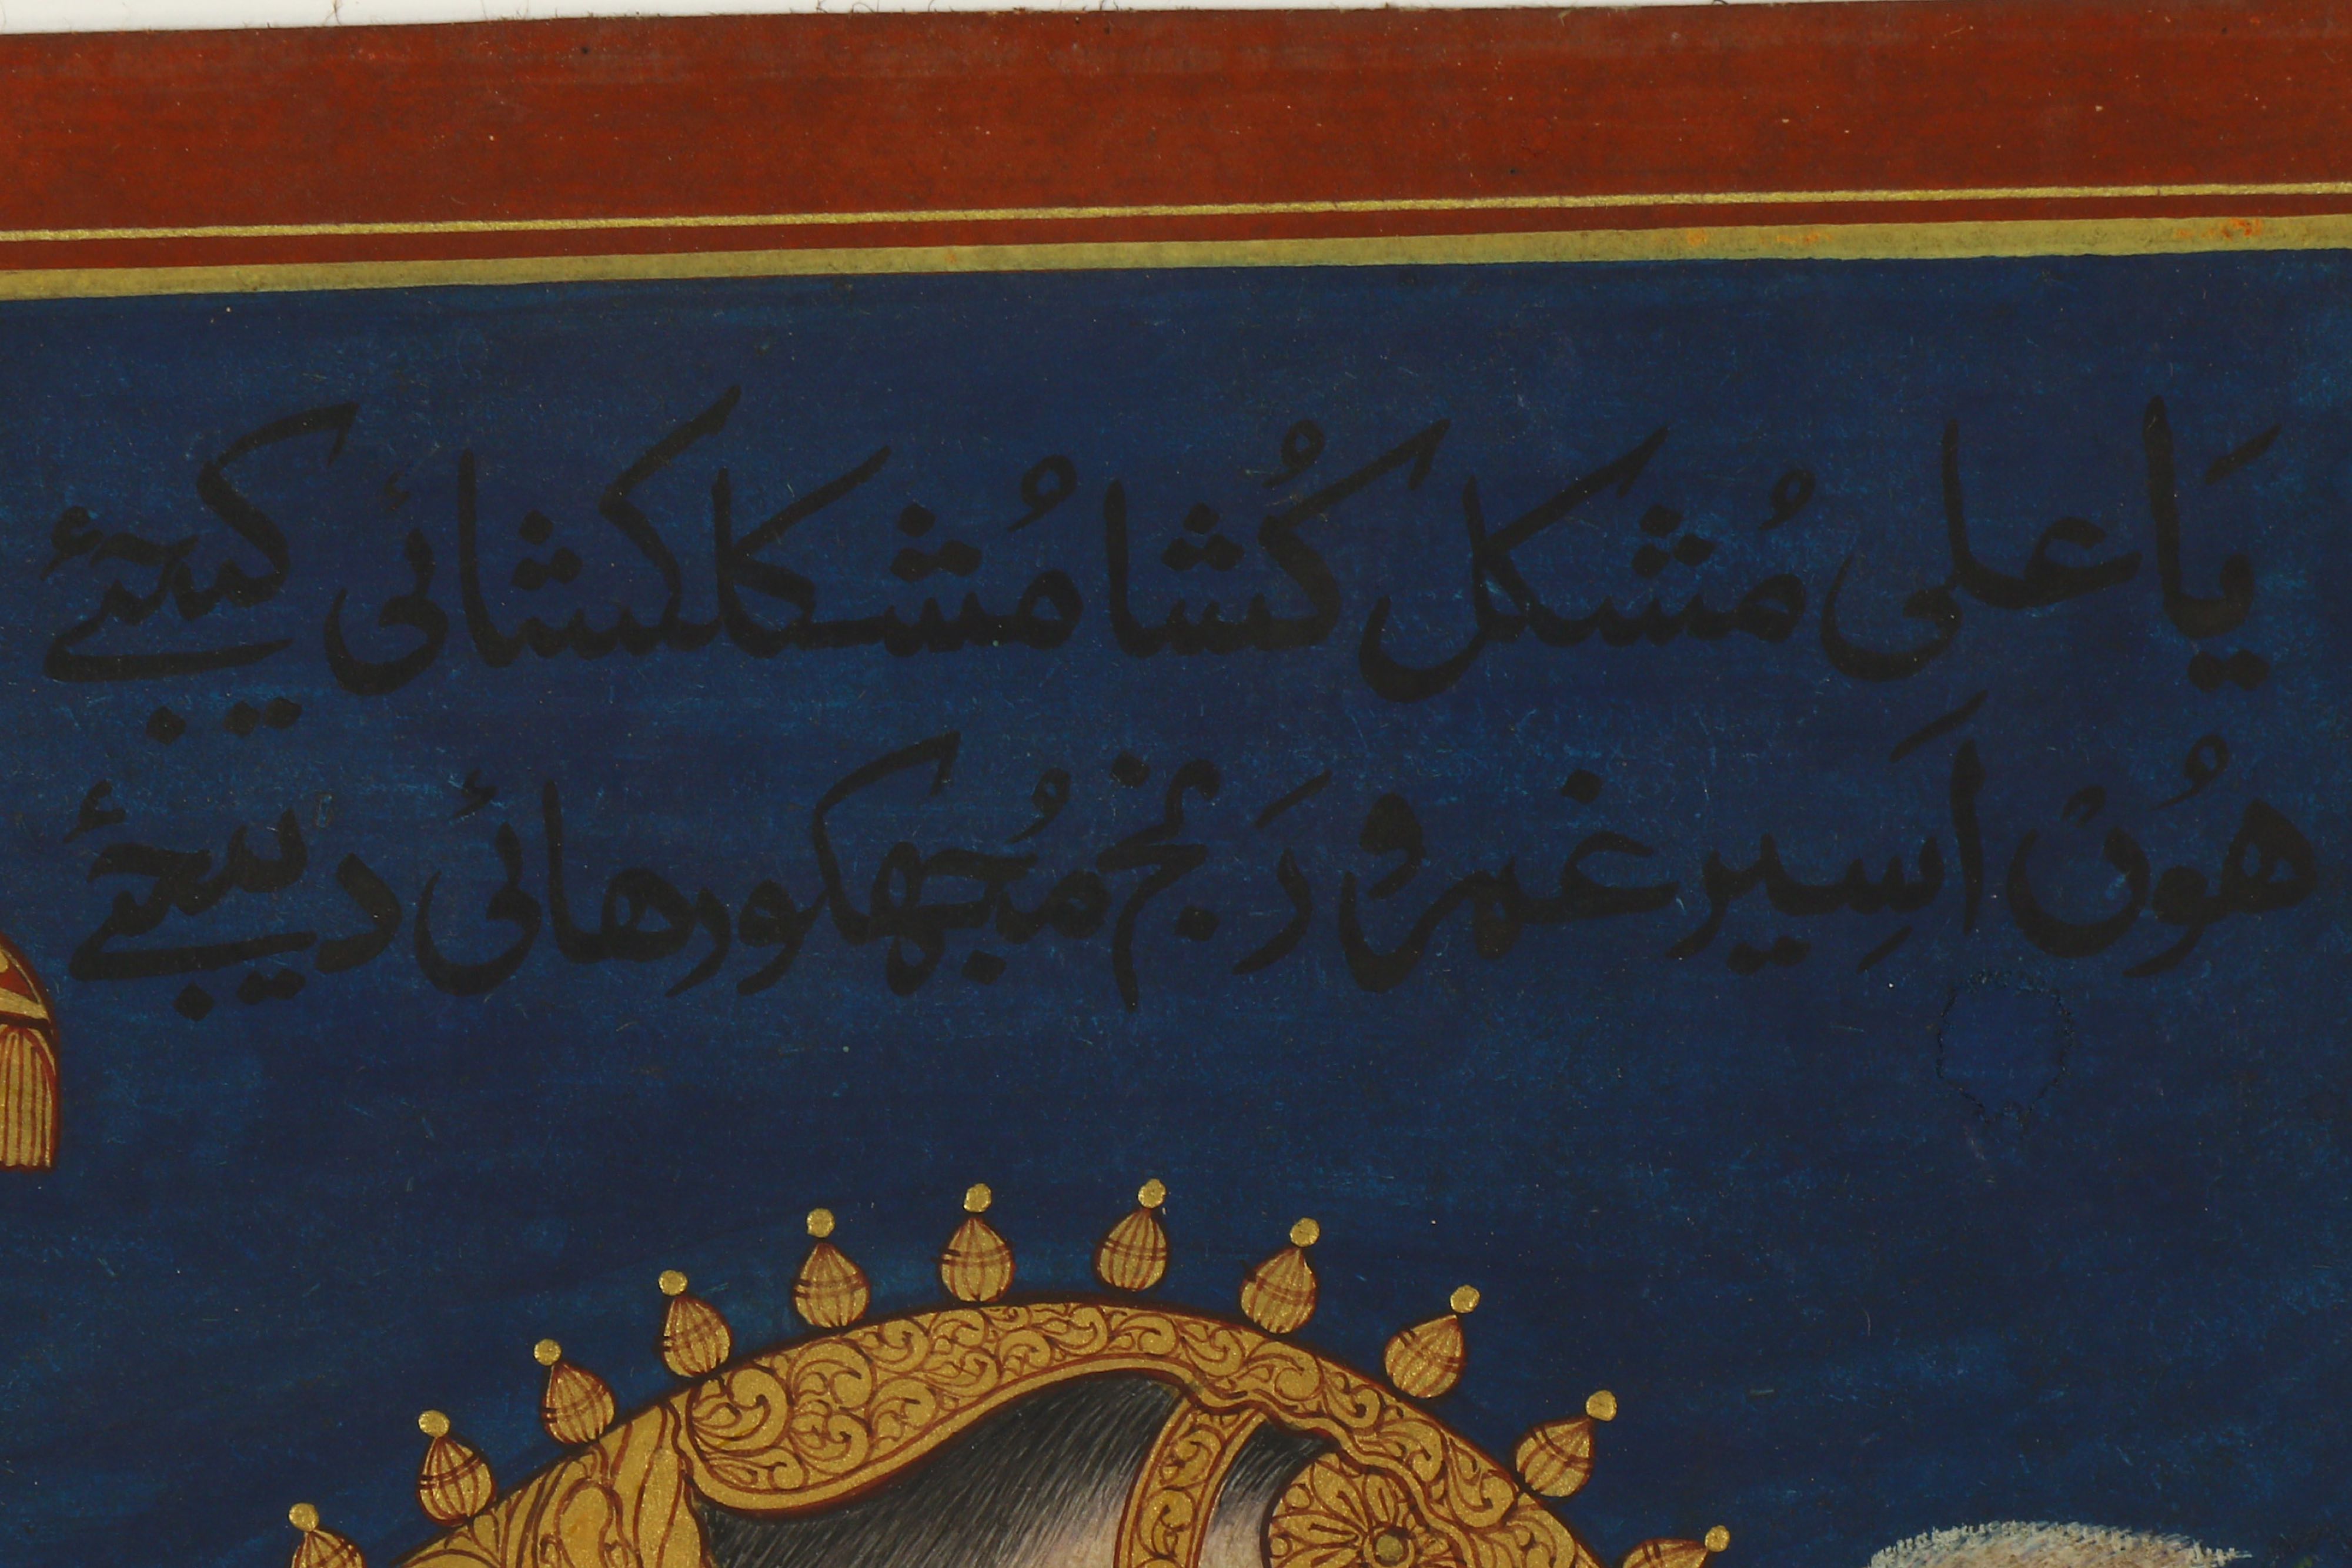 يَا علی مُشکل کُشا مُشکلکشائی کیجئے
هُوںْ اَسِیر غم و رَنج مُجھکو رهائی دیجئے